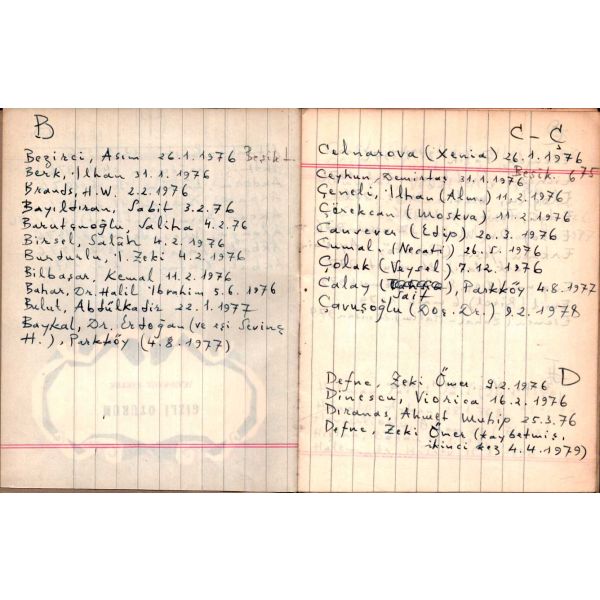 B
Bezirci, Asım 26.1.1976 Beşik
Berk, İlhan 31.1.1976
Brands, H.W. 2.2.1976
Bayıldıran, Sabit 3.2.76
Baratçıoğlu, Saliha 4.2.76
Birsel, Salâh 4.2.1976
Burdurlu, İ. Zeki 4.2.1976
Bilbaşar, Kemal 11.2.1976
Bahar, Dr. Halil İbrahim 5.6.1976
Bulut, Abdülkadir 22.1.1977
Baykal, Dr. Erdoğan (ve eşi Sevinç
H.), Parkköy (4.8.1977)
GİZLİ OTURUM
C - Ç
Celnarova (Xenia) 26.1.1976
Beşik. 675
Ceyhun, Demirtaş 31.1.1976
Çeneli, İlhan (Alm.) 11.2.1976
Çörekcan (Moskva) 11.2.1976
Cansever (Edip) 20.3.1976
Cumalı (Necati) 26.5.1976
Çolak (Veysel) 7.12.1976
Calay (Saif), Parkköy 4.8.1977
Çavuşoğlu (Doç. Dr.) 9.2.1978
D
Defne, Zeki Ömer 9.2.1976
Dinescu, Viorica 16.2.1976
Dıranas, Ahmet Muhip 25.3.76
Defne, Zeki Ömer (kaybetmiş,
ikinci kez 4.4.1979)